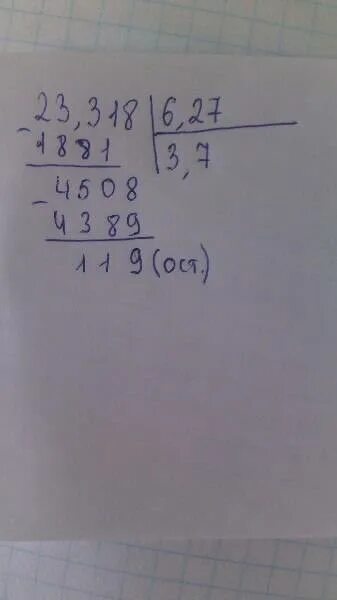 23,318 | 6,27
- 1881 | 3,7
- 4508
4389
119 (ост.)